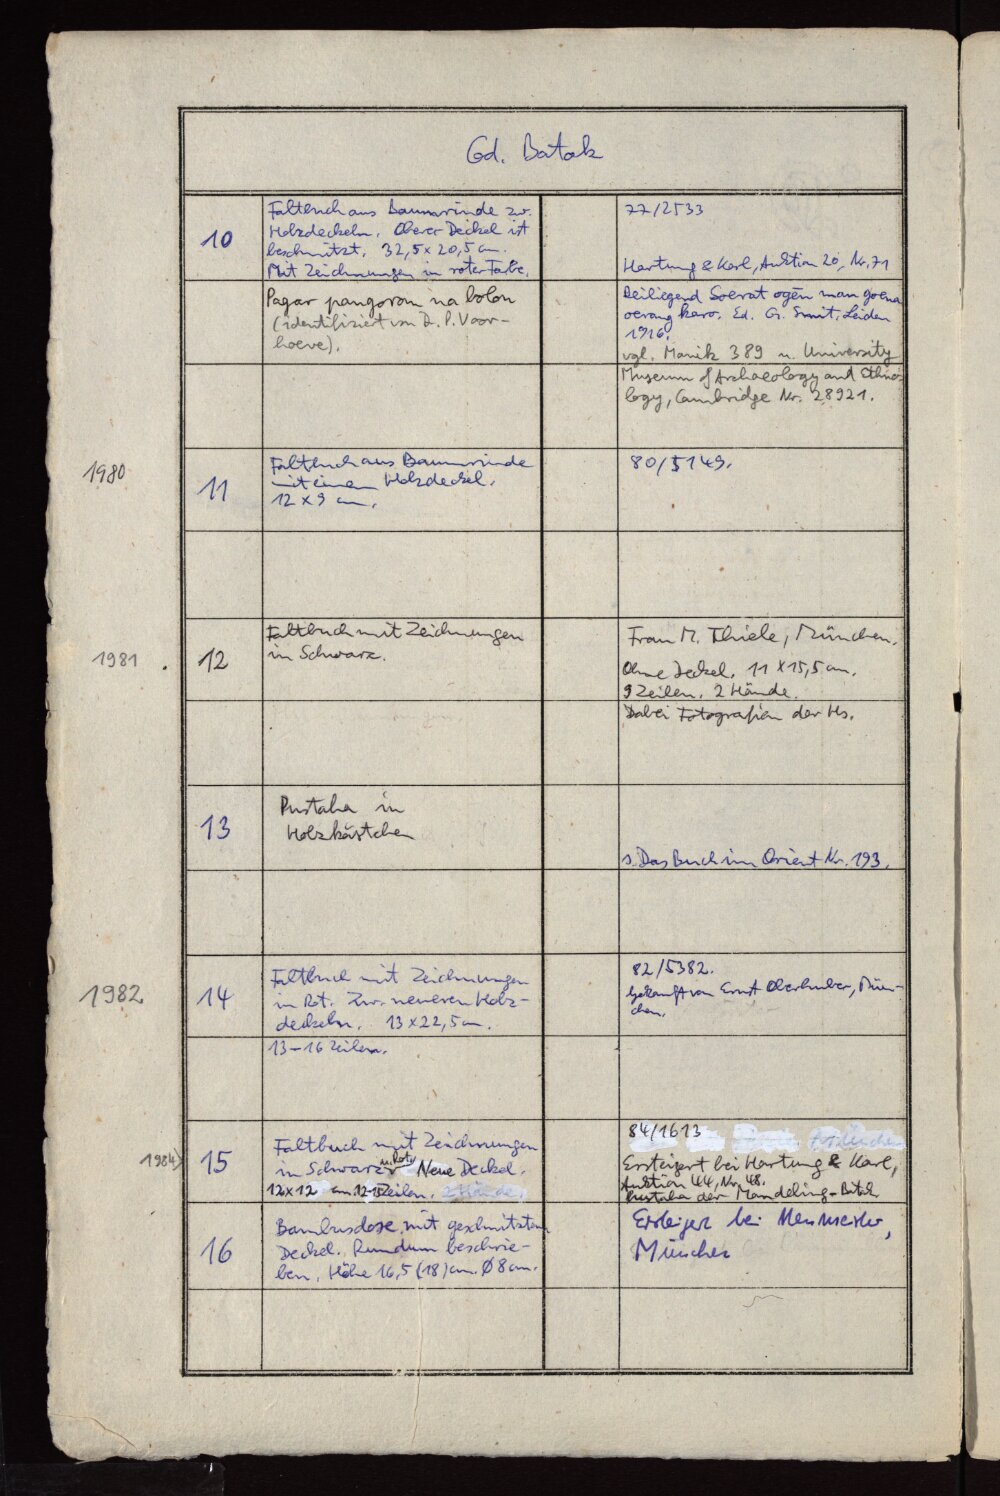 Cod. Batak
10
Faltbuch aus Baumrinde zw.
Holzdeckeln. Oberer Deckel ist
beschnitzt. 32,5 x 20,5 cm.
Mit Zeichnungen in roter Farbe.
77/2533
Hartung & Karl, Auktion 20, Nr. 71
Pagar pangorom na bolon
(identifiziert von Dr. P. Voor-
hoeve).
Beiliegend Soerat ogēn man goena
oerang karo. Ed. G. Smit, Leiden
1916.
vgl. Manik 389 u. University
Museum of Archaeology and Ethno-
logy, Cambridge Nr. 28921.
1980
11
Faltbuch aus Baumrinde
mit einem Holzdeckel.
12 x 9 cm.
80/5149.
1981
12
Faltbuch mit Zeichnungen
in Schwarz.
Frau M. Thiele, München.
Ohne Deckel. 11 x 15,5 cm.
9 Zeilen. 2 Hände.
Dabei Fotografien der Hs.
13
Pustaha in
Holzkästchen
s. Das Buch im Orient Nr. 193.
1982
14
Faltbuch mit Zeichnungen
in Rot. Zw. neueren Holz-
deckeln. 13 x 22,5 cm.
13-16 Zeilen.
82/5382.
Gekauft von Ernst Oberhuber, Mün-
chen.
1984
15
Faltbuch mit Zeichnungen
in Schwarz u. Rot. Neue Deckel.
12x12 cm. 12-15 Zeilen. 2 Hände.
84/1613
Ersteigert bei Hartung & Karl,
Auktion 44, Nr. 48.
Pustaha der Mandeling-Batak
16
Bambusdose, mit geschnitztem
Deckel. Rundum beschrie-
ben. Höhe 16,5 (18) cm. Ø 8 cm.
Ersteigert bei Neumeister,
München